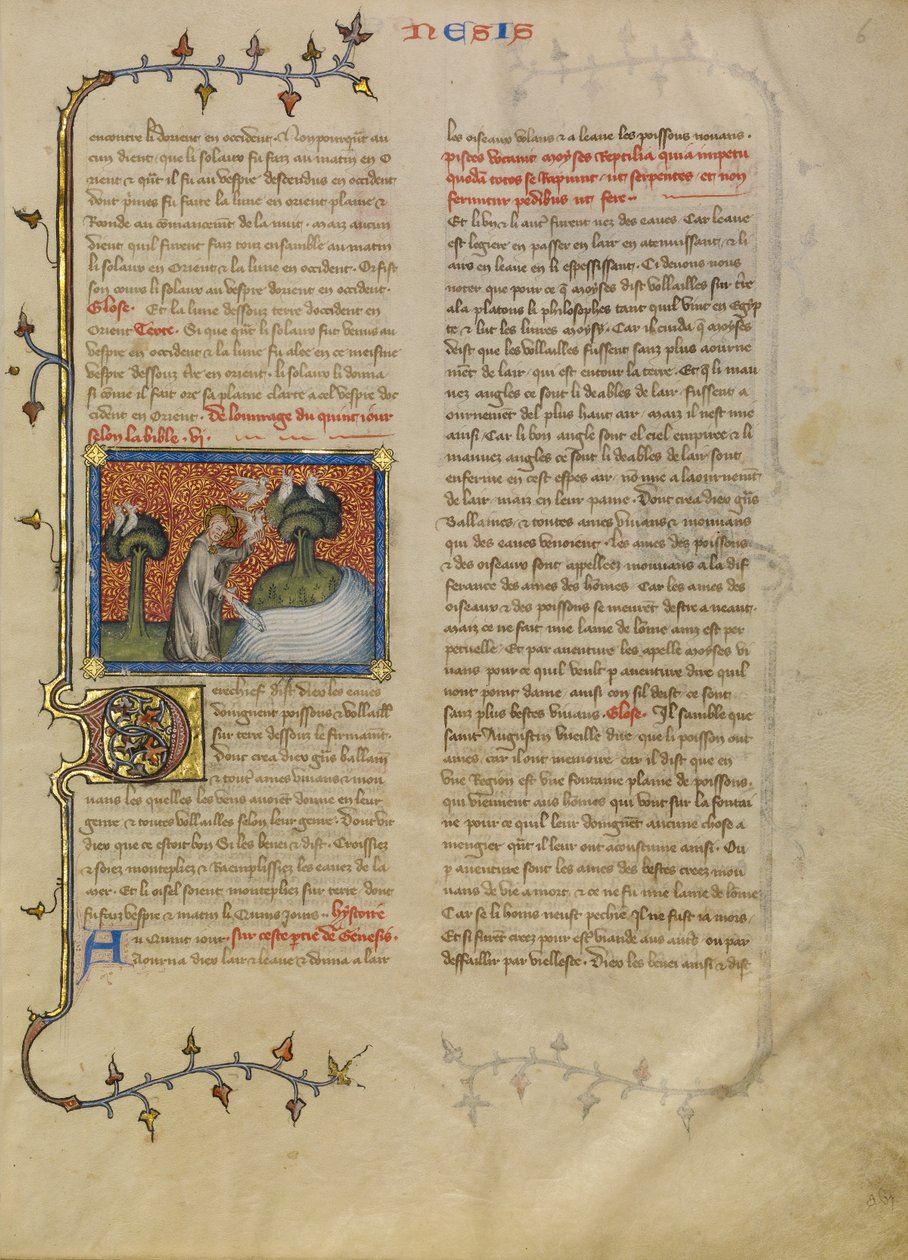 NESIS
6
encontre li dorient en occident. Et nonpourqͣnt au
cun dient. que li solaux fu faiz au matin en O
rient ⁊ qͣnt il fu au vespre descendus en occident
dont p̃mes fu faite la lune en orient plaine ⁊
Roonde au cõmancemt̃ de la nuit. Maiz aucun
dient quil furent faiz touz ensamble au matin
li solaux en Orient ⁊ la lune en occident. Or fist
son cours li solaux au vespre dorient en occident.
Glose. Et la lune dessouz terre doccident en
Orient Texte. Si que qͣnt li solaux fut venus au
vespre en occident ⁊ la lune fu alee en ce meisme
vespre dessouz t̃re en orient. li solaux li dona
si cõme il fait ore sa plaine clarte a cel vespre doc
cident en Orient. De louurage du quint iour
selon la bible. vi.
Derechief dist diex les eaues
doingnent poissons ⁊ vollaill̃
sur terre dessouz le firmamt̃.
Dont crea diex gñs ballain̄
⁊ tout ames viuans ⁊ mou
uans les quelles les yaus auoiẽt donne en leur
genre ⁊ toutes vollailles selon leur genre. Dont vit
diex que ce estoit bon Si les benei ⁊ dist. Croissiez
⁊ soiez montepliez ⁊ Raemplissiez les eauez de la
mer. Et li oisel soient montepliez sur terre. dont
fu faiz vespre ⁊ matin li Quins Jours. hystoire
Au Quint iour. sur ceste p̃tie de Genesis.
Aourna diex lair ⁊ leaue ⁊ donna a lair
les oiseaux volans ⁊ a leaue les poissons nouans.
pisces vocauit Moyses Reptilia quia impetu
quodã totos se Rapiunt. ut serpentes. et non
feruntur pedibus ut fere.
Et li un ⁊ li autͤ furent nez des eaues. Car leaue
est legiere en passer en lair en atenuissant. ⁊ li
airs en leaue en li espessissant. Ci deuons nous
noter que pour ce q̃ Moyses dist vollailles sur t̃re
ala platons li philosophes tant quil vint en Egyp
te. ⁊ lut les liures Moyses. Car il cuida q̃ Moyses
deist que les vollailles fussent sanz plus aourne
mẽt de lair. qui est entour la terre. Et q̃ li mau
uez angles ce sont li deables de lair. fussent a
ournemẽt del plus haut air. Maiz il nest mie
ainsi. Car li bon angle sont el ciel empiree ⁊ li
mauuez angles ce sont li deables de lair. sont
enferme en cest espes air. nõ mie a laournemt̃
de lair. maiz en leur paine. Dont crea diex gñs
Ballaines. ⁊ toutes ames viuans ⁊ mouuans
qui des eaues venoient. les ames des poissons
⁊ des oiseaux sont appellees mouuans a la dif
ferance des ames des hõmes. Car les ames des
oiseaux ⁊ des poissons se meurẽt destre a neant.
Maiz ce ne fait mie lame de lõme ainz est per
petuelle. Et par auenture les apelle Moyses vi
uans pour ce quil veult p auenture dire quil
nont point dame. ainsi con sil deist. ce sont
sanz plus bestes viuans. Glose. Il samble que
saint Augustin vueille dire. que li poisson ont
ames. car il ont memoire. car il dist que en
vne Region est vne fontaine plaine de poissons.
qui viennent aus hõmes qui vont sur la fontai
ne pour ce quil leur doingnẽt aucune chose a
mengier. qͣnt il leur ont acoustume ainsi. Ou
p auenture sont les ames des bestes creez mou
uans de vie a mort. ⁊ ce ne fu mie lame de lõme
Car se li homs neust pechie. Il ne fust ia mors.
Et si furẽt creez pour estͤ viande aus autͤs. ou par
deffaillir par viellesce. Diex les benei ainsi ⁊ dist